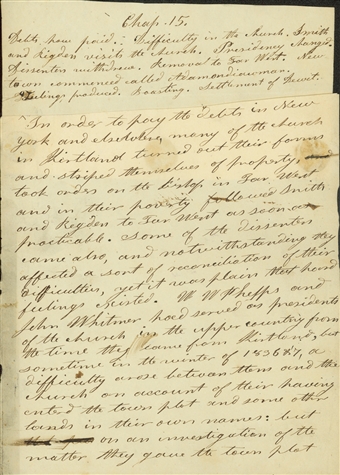 Chap. 15.
Debts how paid. Difficulty in the church. Smith
and Rigdon visits the church. Presidency changed.
Dissenters withdrew. Removal to Far West. New
town commenced called Adamondiowman.
Feelings produced. boasting. Settlement of Dewit.
In order to pay the debts in New
york and elsewhere, many of the church
in Kirtland turned out their farms
and striped themselves of property,
took orders on the bishop in Far West
and in their poverty followed Smith
and Rigdon to Far West as soon as
practicable. Some of the dissenters
came also, and notwithstanding they
affected a sort of reconciliation of their
difficulties, yet it was plain that hard
feelings existed. W W Phelps and
John Whitmer had served as presidents
of the church in the upper country from
the time they came from Kirtland, but
sometime in the winter of 1836 & 7, a
difficulty arose between them and the
church on account of their having
entered the town plot and some other
lands in their own names: but
on an investigation of the
matter they gave the town plot